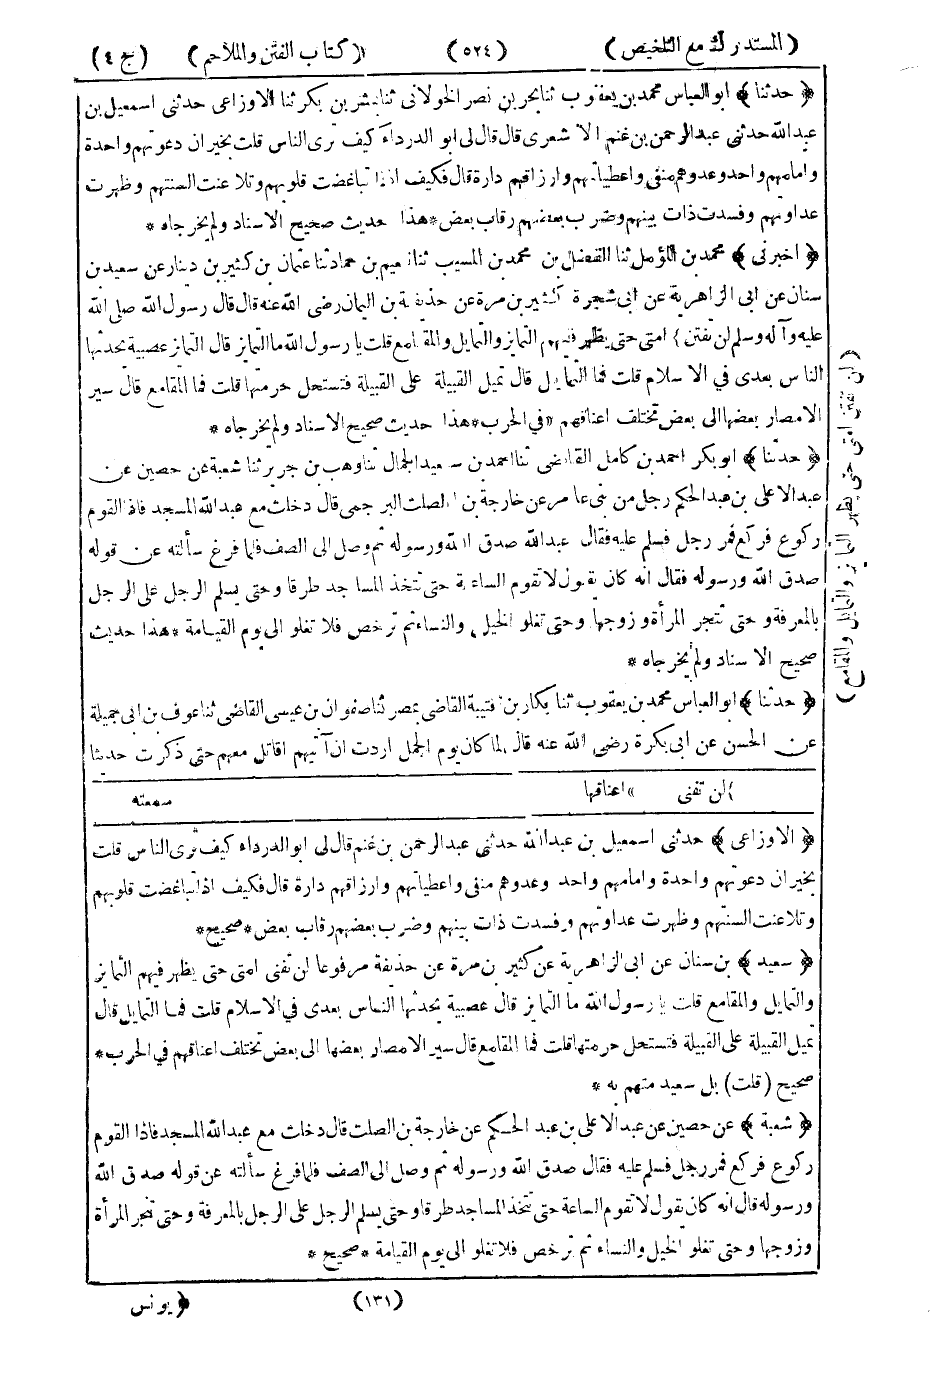 (المستدرك مع التلخيص) (٥٢٤) (كتاب الفتن والملاحم) (ج ٤)
﴿ حدثنا ﴾ ابو العباس محمد بن يعقوب ثنا بحر بن نصر الخولانى ثنا بشر بن بكر ثنا الاوزاعى حدثنى اسمعيل بن
عبدالله حدثنى عبدالرحمن بن غنم الاشعرى قال قال لى ابو الدرداء كيف ترى الناس قلت بخير ان دعوتهم واحدة
وامامهم واحد وعدوهم منفى واعطياتهم وارزاقهم دارة قال فكيف اذا تباغضت قلوبهم وتلاعنت السنتهم وظهرت
عداوتهم وفسدت ذات بينهم وضرب بعضهم رقاب بعض *هذا حديث صحيح الاسناد ولم يخرجاه *
﴿ اخبرنى ﴾ محمد بن المؤمل ثنا الفضل بن محمد بن المسيب ثنا نعيم بن حماد ثنا عثمان بن كثير بن دينار عن سعيد بن
سنان عن ابى الزاهرية عن ابى شجرة كثير بن مرة عن حذيفة بن اليمان رضى الله عنه قال قال رسول الله صلى الله
عليه وآله وسلم لن تفتن } امتى حتى يظهر فيهم التمايز والتمايل والمقامع قلت يا رسول الله ما التمايز قال التمايز عصبية يحدثها
الناس بعدى في الاسلام قلت فما التمايل قال تميل القبيلة على القبيلة فتستحل حرمتها قلت فما المقامع قال سير
الامصار بعضها الى بعض تختلف اعناقهم » في الحرب *هذا حديث صحيح الاسناد ولم يخرجاه *
﴿ حدثنا ﴾ ابو بكر احمد بن كامل القاضى ثنا احمد بن سعيد الجمال ثنا وهب بن جرير ثنا شعبة عن حصين عن
عبد الاعلى بن عبد الحكم رجل من بنى عامر عن خارجة بن الصلت البرجمى قال دخلت مع عبدالله المسجد فاذا القوم
ركوع فركع فمر رجل فسلم عليه فقال عبدالله صدق الله ورسوله ثم وصل الى الصف فلما فرغ سألته عن قوله
صدق الله ورسوله فقال انه كان يقول لا تقوم الساعة حتى تتخذ المساجد طرقا وحتى يسلم الرجل على الرجل
بالمعرفة وحتى تتجر المرأة وزوجها وحتى تغلو الخيل والنساء ثم ترخص فلا تغلو الى يوم القيامة *هذا حديث
صحيح الاسناد ولم يخرجاه *
﴿ حدثنا ﴾ ابو العباس محمد بن يعقوب ثنا بكار بن قتيبة القاضى بمصر ثنا صفوان بن عيسى القاضى ثنا عوف بن ابى جميلة
عن الحسن عن ابى بكرة رضى الله عنه قال لما كان يوم الجمل اردت ان آتيهم اقاتل معهم حتى ذكرت حديثا
(لن تفتن امتى حتى يظهر التمايز والتمايل والمقامع)
} لن تفنى » اعناقها سمعته
﴿ الاوزاعى ﴾ حدثنى اسمعيل بن عبدالله حدثنى عبدالرحمن بن غنم قال لى ابو الدرداء كيف ترى الناس قلت
بخير ان دعوتهم واحدة وامامهم واحد وعدوهم منفى واعطياتهم وارزاقهم دارة قال فكيف اذا تباغضت قلوبهم
وتلاعنت السنتهم وظهرت عداوتهم وفسدت ذات بينهم وضرب بعضهم رقاب بعض *صحيح*
﴿ سعيد ﴾ بن سنان عن ابى الزاهرية عن كثير بن مرة عن حذيفة مرفوعا لن تفنى امتى حتى يظهر فيهم التمايز
والتمايل والمقامع قلت يا رسول الله ما التمايز قال عصبية يحدثها الناس بعدى في الاسلام قلت فما التمايل قال
تميل القبيلة على القبيلة فتستحل حرمتها قلت فما المقامع قال سير الامصار بعضها الى بعض تختلف اعناقهم في الحرب *
صحيح (قلت) بل سعيد متهم به *
﴿ شعبة ﴾ عن حصين عن عبد الاعلى بن عبد الحكم عن خارجة بن الصلت قال دخلت مع عبدالله المسجد فاذا القوم
ركوع فركع فمر رجل فسلم عليه فقال صدق الله ورسوله ثم وصل الى الصف فلما فرغ سألته عن قوله صدق الله
ورسوله قال انه كان يقول لا تقوم الساعة حتى تتخذ المساجد طرقا وحتى يسلم الرجل على الرجل بالمعرفة وحتى تتجر المرأة
وزوجها وحتى تغلو الخيل والنساء ثم ترخص فلا تغلو الى يوم القيامة *صحيح *
(١٣١) ﴿ يونس